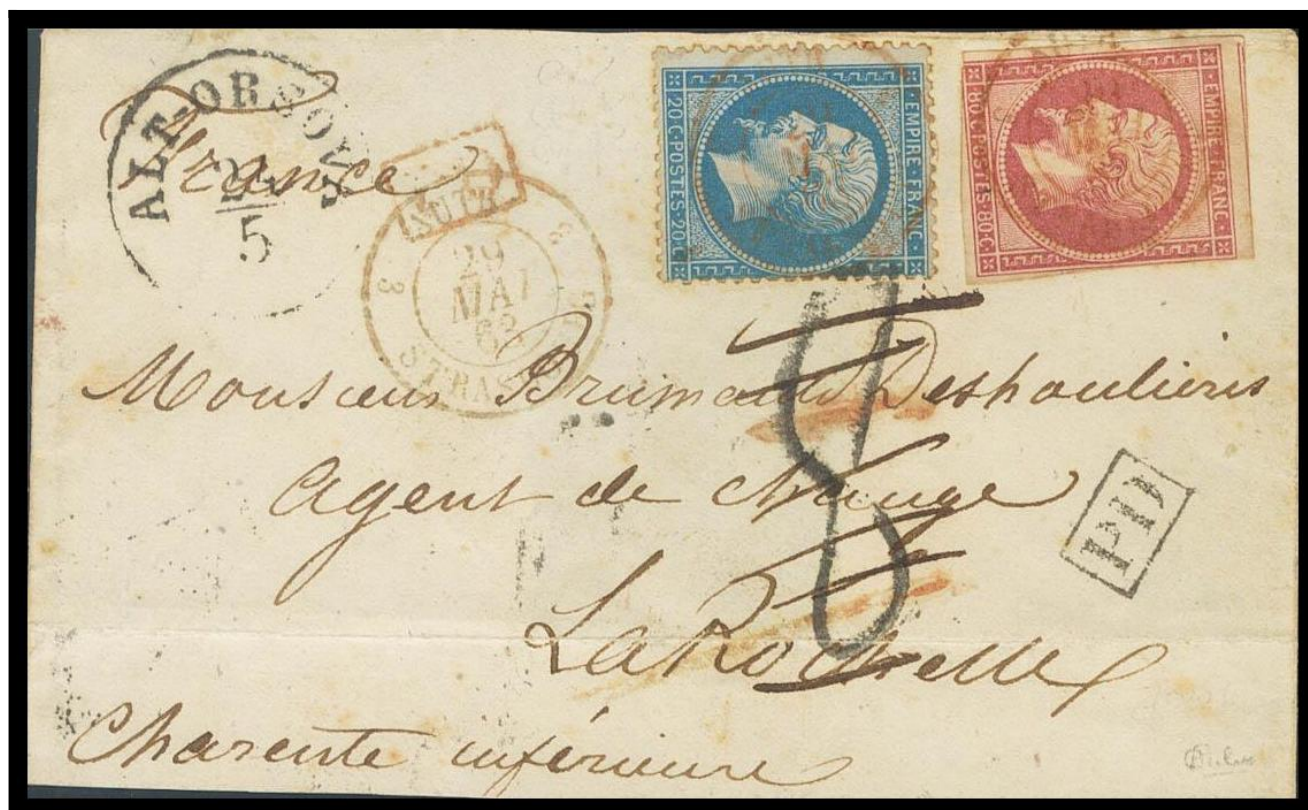 ALT-ORSOVA
5
France
AUTR
3 3
29
MAI
62
STRASB
EMPIRE · FRANC ·
20 · C · POSTES · 20 · C
EMPIRE · FRANC ·
80 · C · POSTES · 80 · C
8
Monsieur Brumauld Deshoulieres
agent de change
PD
La Rochelle
Charente inférieure